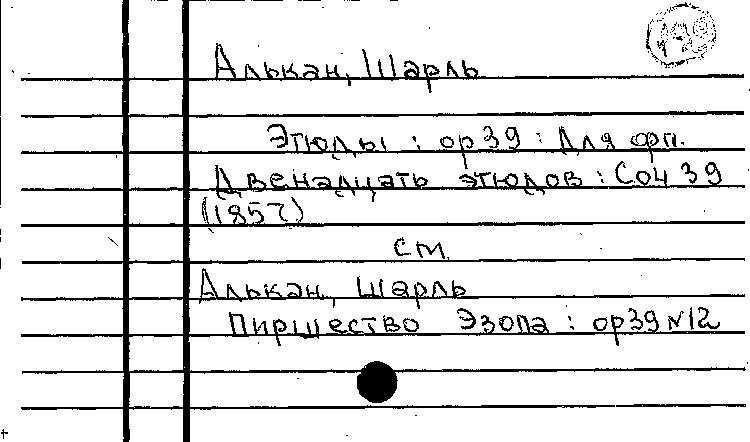 Алькан, Шарль
Этюды : op 39 : Для фп.
Двенадцать этюдов : Соч 39
(1857)
см.
Алькан, Шарль
Пиршество Эзопа : op 39 N 12